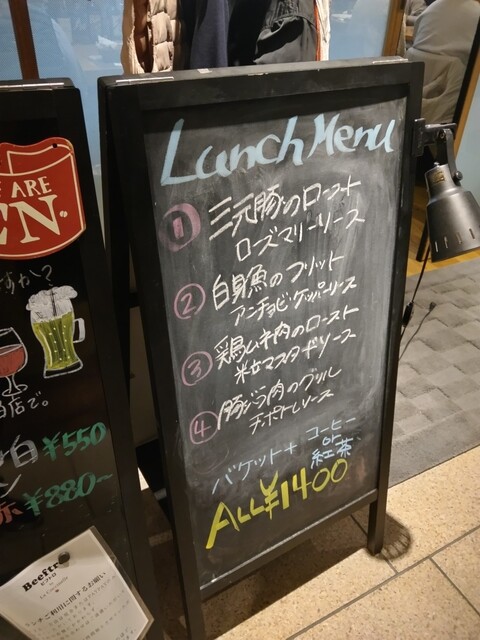 Lunch Menu
① 三元豚のロースト
ローズマリーソース
② 白身魚のフリット
アンチョビ・ケッパーソース
③ 鶏ムネ肉のロースト
粒マスタードソース
④ 豚バラ肉のグリル
チポトレソース
バケット + コーヒー
or
紅茶
ALL ¥1400
ARE
EN.
か?
店で。
白 ¥550
ン
赤 ¥880~
Beeftro
ランチご利用に関するお願い